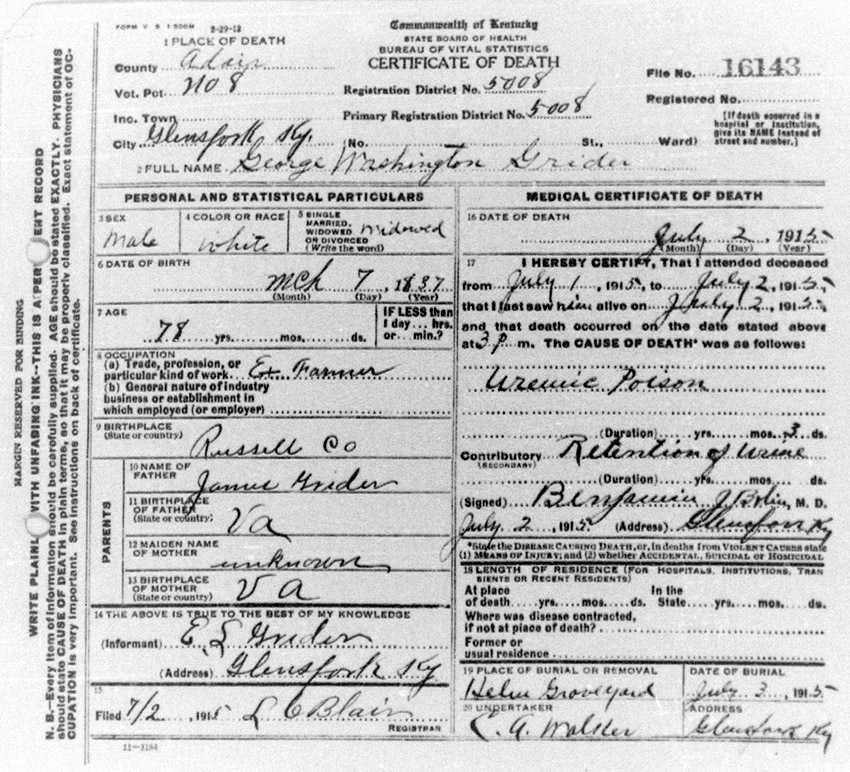 FORM V S 1 500M 2-29-12
Commonwealth of Kentucky
STATE BOARD OF HEALTH
BUREAU OF VITAL STATISTICS
CERTIFICATE OF DEATH
1 PLACE OF DEATH
County Adair
Vot. Pct. No 8
Inc. Town
City Glensfork, Ky.
Registration District No. 5008
Primary Registration District No. 5008
File No. 16143
Registered No.
[If death occurred in a hospital or institution, give its NAME instead of street and number.]
(No. St., Ward)
2 FULL NAME George Washington Grider
PERSONAL AND STATISTICAL PARTICULARS
3 SEX Male
4 COLOR OR RACE White
5 SINGLE MARRIED, WIDOWED OR DIVORCED (Write the word) Widowed
6 DATE OF BIRTH
Mch 7, 1837
(Month) (Day) (Year)
7 AGE
78 yrs. mos. ds.
IF LESS than 1 day... hrs. or... min.?
8 OCCUPATION
(a) Trade, profession, or particular kind of work Ex Farmer
(b) General nature of industry business or establishment in which employed (or employer)
9 BIRTHPLACE (State or country) Russell Co
PARENTS
10 NAME OF FATHER James Grider
11 BIRTHPLACE OF FATHER (State or country) Va
12 MAIDEN NAME OF MOTHER unknown
13 BIRTHPLACE OF MOTHER (State or country) Va
14 THE ABOVE IS TRUE TO THE BEST OF MY KNOWLEDGE
(Informant) E L Grider
(Address) Glensfork Ky
15
Filed 7/2, 1915 L C Blair
REGISTRAR
11-3184
MEDICAL CERTIFICATE OF DEATH
16 DATE OF DEATH
July 2, 1915
(Month) (Day) (Year)
17 I HEREBY CERTIFY, That I attended deceased
from July 1, 1915, to July 2, 1915
that I last saw him alive on July 2, 1915
and that death occurred on the date stated above
at 3 P. m. The CAUSE OF DEATH* was as follows:
Uremic Poison
(Duration) yrs. mos. 3 ds.
Contributory (SECONDARY) Retention of Urine
(Duration) yrs. mos. ds.
(Signed) Benjamin J Bolin, M. D.
July 2, 1915 (Address) Glensfork Ky
*State the DISEASE CAUSING DEATH, or, in deaths from VIOLENT CAUSES state
(1) MEANS OF INJURY; and (2) whether ACCIDENTAL, SUICIDAL OR HOMICIDAL
18 LENGTH OF RESIDENCE (FOR HOSPITALS, INSTITUTIONS, TRAN
SIENTS OR RECENT RESIDENTS)
At place of death yrs. mos. ds. In the State yrs. mos. ds.
Where was disease contracted, if not at place of death?
Former or usual residence
19 PLACE OF BURIAL OR REMOVAL Helm Graveyard
DATE OF BURIAL July 3, 1915
20 UNDERTAKER C. A. Walker
ADDRESS Glensfork Ky
MARGIN RESERVED FOR BINDING
WRITE PLAINL WITH UNFADING INK--THIS IS A PER ENT RECORD
N. B.—Every item of information should be carefully supplied. AGE should be stated EXACTLY. PHYSICIANS
should state CAUSE OF DEATH in plain terms, so that it may be properly classified. Exact statement of OC-
CUPATION is very important. See instructions on back of certificate.